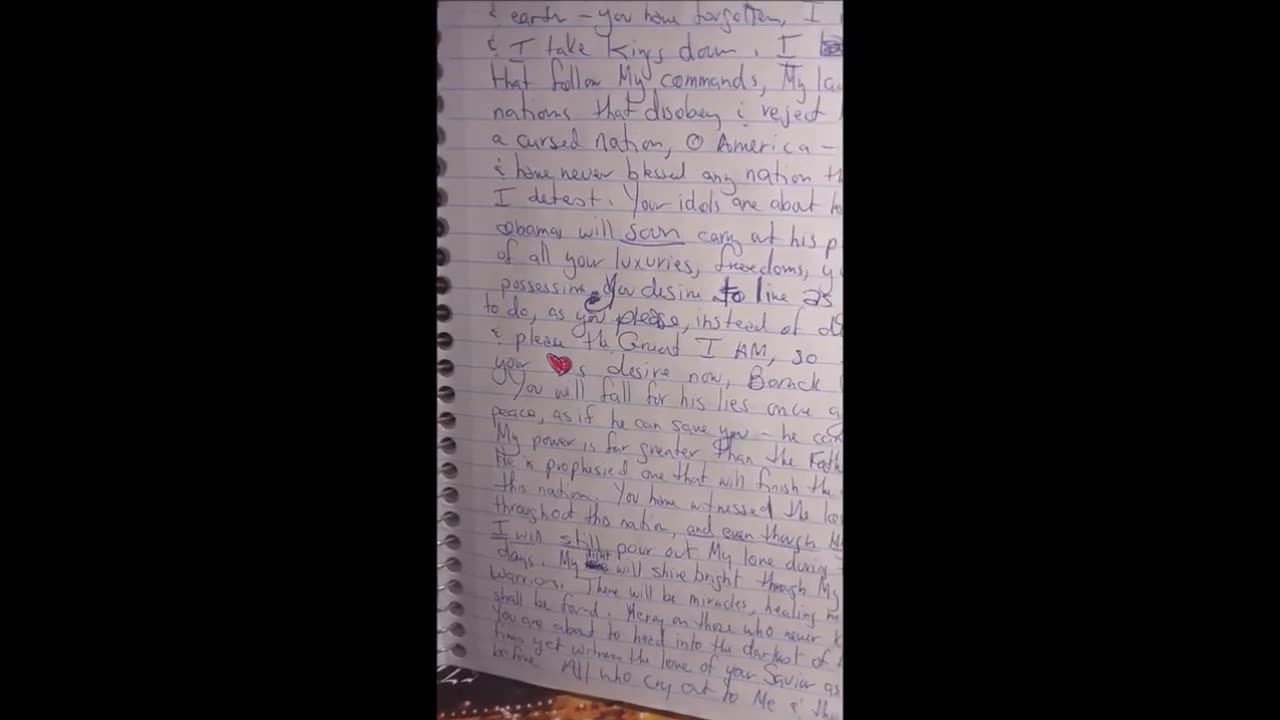 & earth - you have forgotten, I
& I take kings down. I
that follow My commands, My la
nations that disobey & reject
a cursed nation, O America -
& have never blessed any nation th
I detest. Your idols are about to
Obama, will soon carry out his p
of all your luxuries, freedoms, y
possessing. You desire to live as
to do, as you please, instead of
& please the Great I AM, so
your ❤s desire now, Barack
You will fall for his lies once a
peace, as if he can save you - he can
My power is far greater than the Fath
He is prophesied one that will finish the
this nation. You have witnessed the
throughout this nation, and even though M
I will still pour out My love during
days. My light will shine bright through My
Warriors. There will be miracles, healing
shall be found. Mercy on those who never k
You are about to head into the darkest of
time yet witness the love of your Savior as
before. All who cry out to Me & th